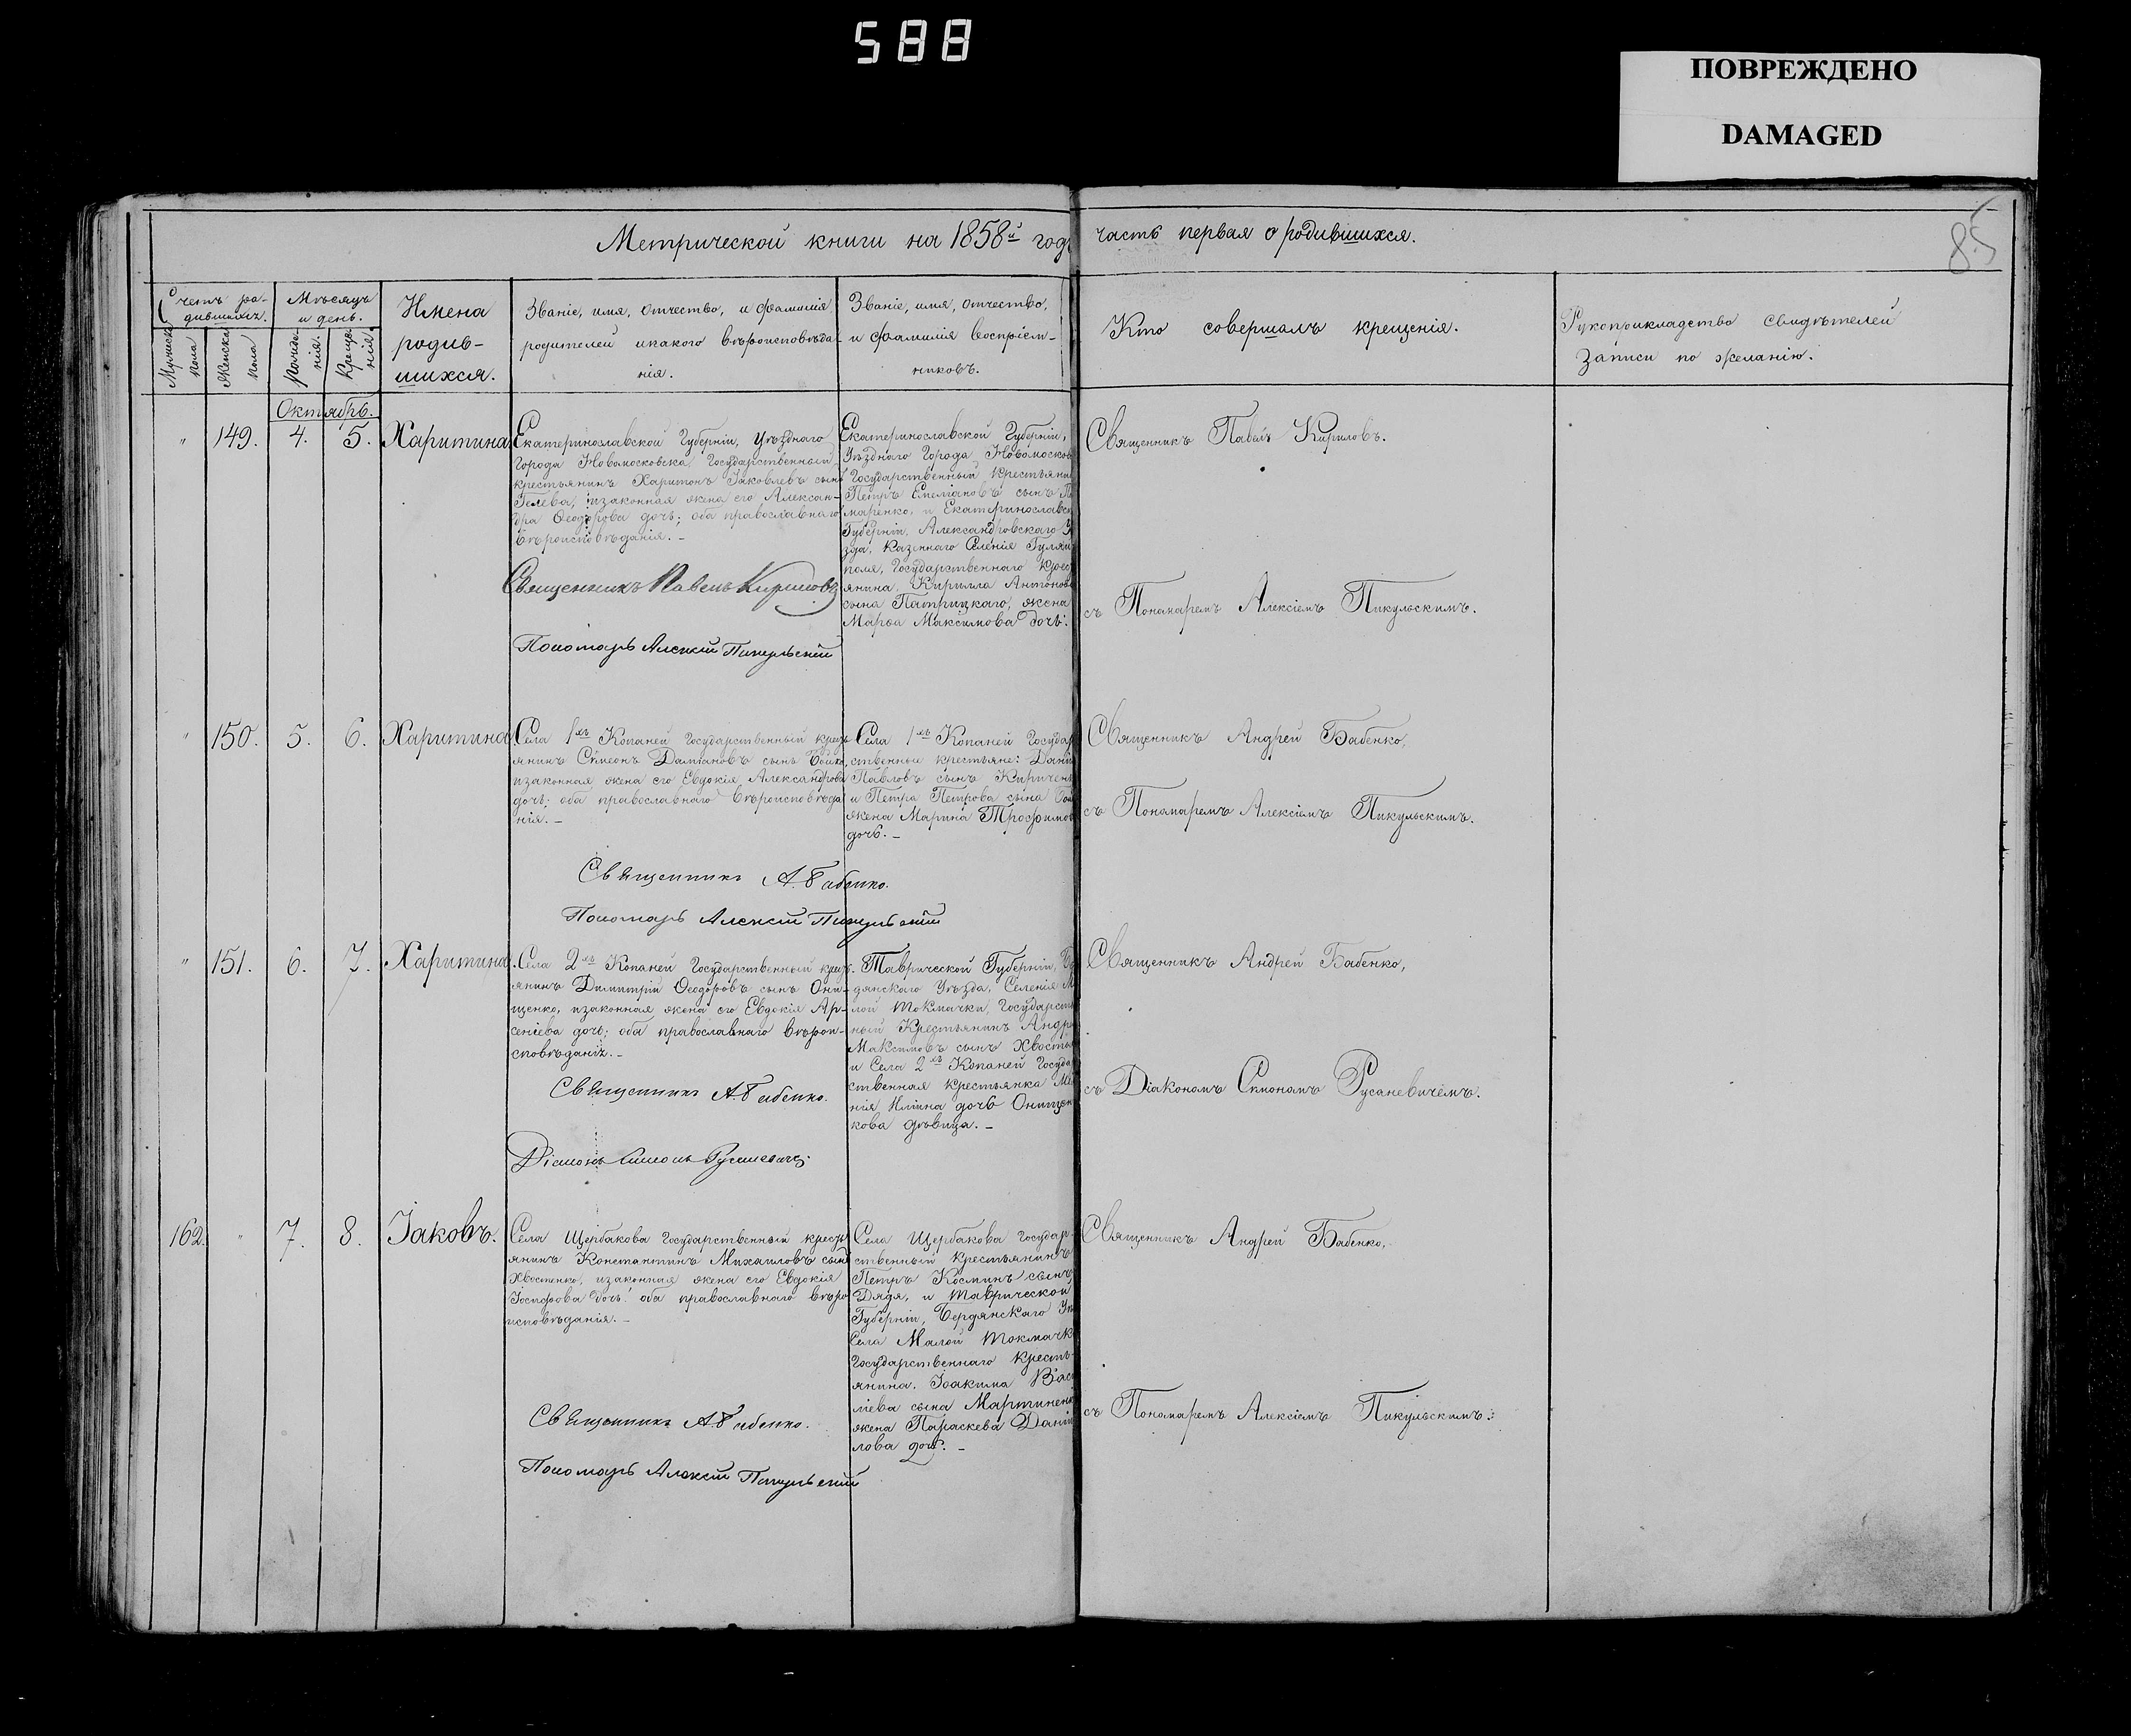 588
ПОВРЕЖДЕНО
DAMAGED
85
Метрической книги на 1858й годъ часть первая о родившихся.
Счетъ родившихъ.
Мужеска пола
Женска пола
Мѣсяцъ и день.
Рожденія.
Крещенія.
Имена
родив-
шихся.
Званіе, имя, отчество, и фамилія
родителей икакого вѣроисповѣда-
нія.
Званіе, имя, отчество,
и фамилія воспріем-
никовъ.
Кто совершалъ крещенія.
Рукоприкладство свидѣтелей
записи по желанію.
Октябрь.
" 149. 4. 5. Харитина
Екатеринославской Губерніи, Уѣзднаго
города Новомосковска, Государственный
крестьянинъ Харитонъ Іаковлевъ сынъ
Гелева, изаконная жена его Алексан-
дра Ѳеодорова дочь; оба православнаго
вѣроисповѣданія. –
Священникъ Павелъ Кириловъ
Пономарь Алексій Пикульскій
Екатеринославской Губерніи,
Уѣзднаго Города Новомосков
Государственный крестьяни
Петръ Емеліановъ сынъ
маренко, и Екатеринославс
Губерніи, Александровскаго У
зда, Казеннаго Селенія Гуляй
поля, Государственнаго крест
янина, Кирилла Антонов
сына Патрицкаго, жена
Марѳа Максимова дочь.
Священникъ Павелъ Кириловъ.
съ Пономаремъ Алексіемъ Пикульскимъ.
" 150. 5. 6. Харитина
Села 1хъ Копаней Государственный крест
янинъ Симеонъ Даміановъ сынъ Бойко,
изаконная жена его Евдокія Александрова
дочь; оба православнаго вѣроисповѣда
нія. –
Священникъ А. Бабенко.
Пономарь Алексій Пикульскій
Села 1хъ Копаней Государ
ственные крестьяне: Дани
Павловъ сынъ Кириченк
и Петра Петрова сына
жена Марина Трофимов
дочь. –
Священникъ Андрей Бабенко,
съ Пономаремъ Алексіемъ Пикульскимъ.
" 151. 6. 7. Харитина.
Села 2хъ Копаней Государственный крест
янинъ Димитрій Ѳеодоровъ сынъ Они-
щенко, изаконная жена его Евдокія Ар-
сеніева дочь; оба православнаго вѣрои-
сповѣданія. –
Священникъ А. Бабенко.
Діаконъ Симеонъ Русаневичъ
Таврической Губерніи, Бе
дянскаго Уѣзда, Селенія М
лой Токмачки, Государств
ный Крестьянинъ Андр
Максимовъ сынъ Хвосте
и Села 2хъ Копаней Госуда
ственная крестьянка Ме
нія Иліина дочь Онищен
кова дѣвица. –
Священникъ Андрей Бабенко,
съ Діакономъ Симономъ Русаневичемъ.
162. " 7. 8. Іаковъ.
Села Щербакова Государственный крест
янинъ Константинъ Михаиловъ сынъ
Хвостенко, изаконная жена его Евдокія
Іосифова дочь: оба православнаго вѣро
исповѣданія. –
Священникъ А. Бабенко.
Пономарь Алексій Пикульскій
Села Щербакова Государ-
ственный Крестьянинъ
Петръ Косминъ сынъ
Дядя, и Таврической
Губерніи, Бердянскаго Уѣ
Села Малой Токмачк
Государственнаго Кресть-
янина, Іоакима Васи
ліева сына Мартиненк
жена Параскева Даніи
лова дочь. –
Священникъ Андрей Бабенко,
съ Пономаремъ Алексіемъ Пикульскимъ.